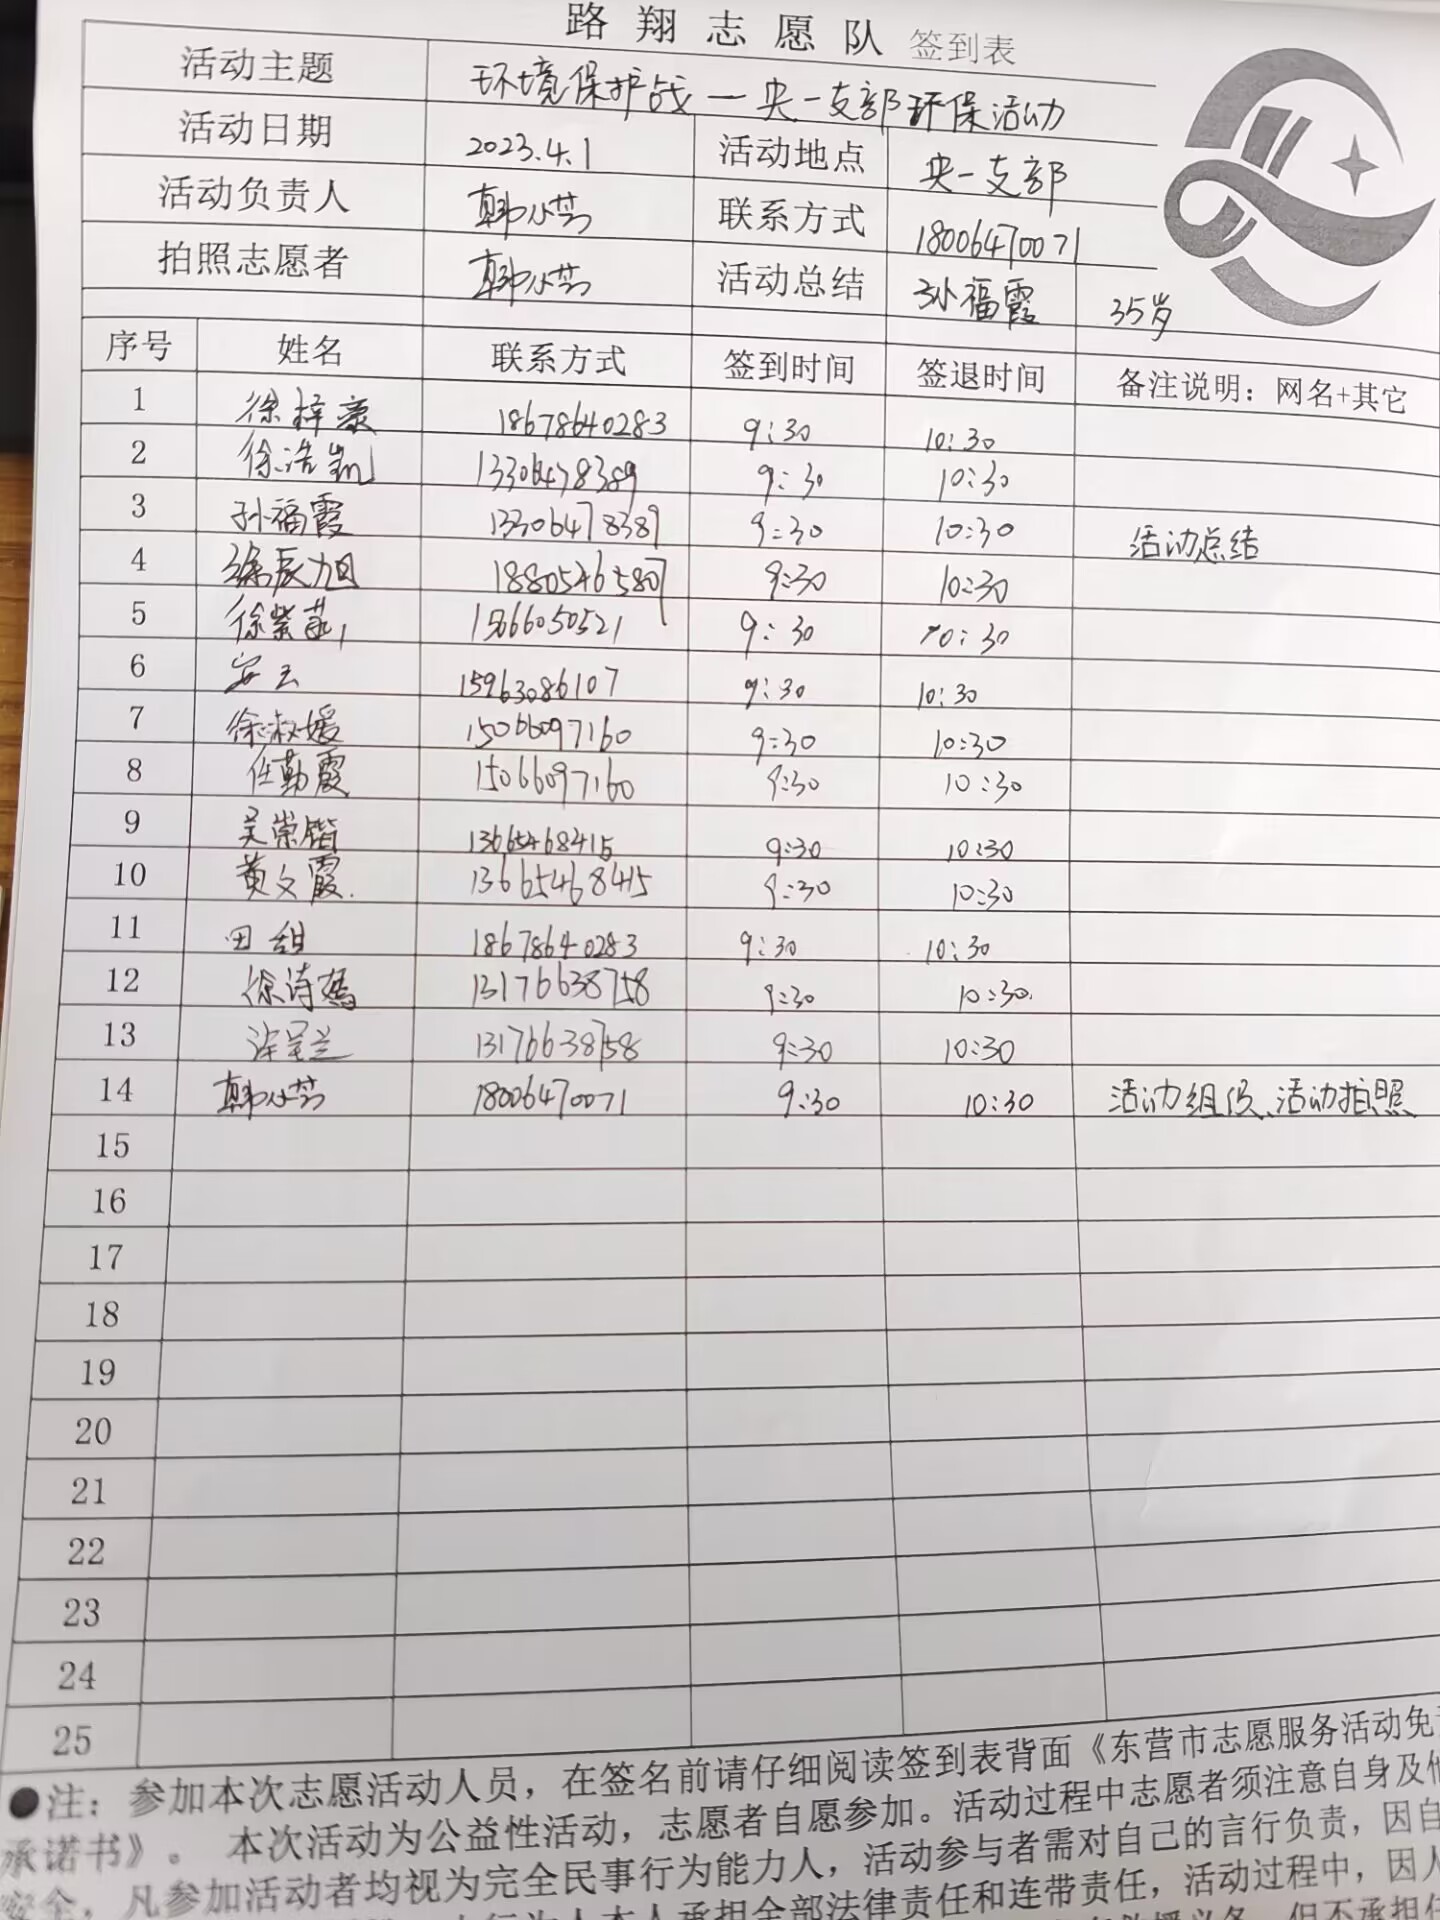 路翔志愿队 签到表
活动主题 环境保护战一央一支部环保活动
活动日期 2023.4.1 活动地点 央一支部
活动负责人 韩小芳 联系方式 18006470071
拍照志愿者 韩小芳 活动总结 孙福霞 35岁
序号 姓名 联系方式 签到时间 签退时间 备注说明：网名+其它
1 徐梓豪 18678640283 9:30 10:30
2 徐浩凯 13306478389 9:30 10:30
3 孙福霞 13306478389 9:30 10:30 活动总结
4 徐辰旭 18805465807 9:30 10:30
5 徐紫 15666050521 9:30 10:30
6 安云 15963086107 9:30 10:30
7 徐淑媛 15066097160 9:30 10:30
8 任勤霞 15066097160 9:30 10:30
9 吴崇锴 13665468415 9:30 10:30
10 黄文霞. 13665468415 9:30 10:30
11 田甜 18678640283 9:30 10:30
12 徐诗嫣 13176638758 9:30 10:30.
13 兰 13176638758 9:30 10:30
14 韩小芳 18006470071 9:30 10:30 活动组织、活动拍照
15
16
17
18
19
20
21
22
23
24
25
●注：参加本次志愿活动人员，在签名前请仔细阅读签到表背面《东营市志愿服务活动免
承诺书》。本次活动为公益性活动，志愿者自愿参加。活动过程中志愿者须注意自身及他
安全，凡参加活动者均视为完全民事行为能力人，活动参与者需对自己的言行负责，因自
人本人承担全部法律责任和连带责任，活动过程中，因人